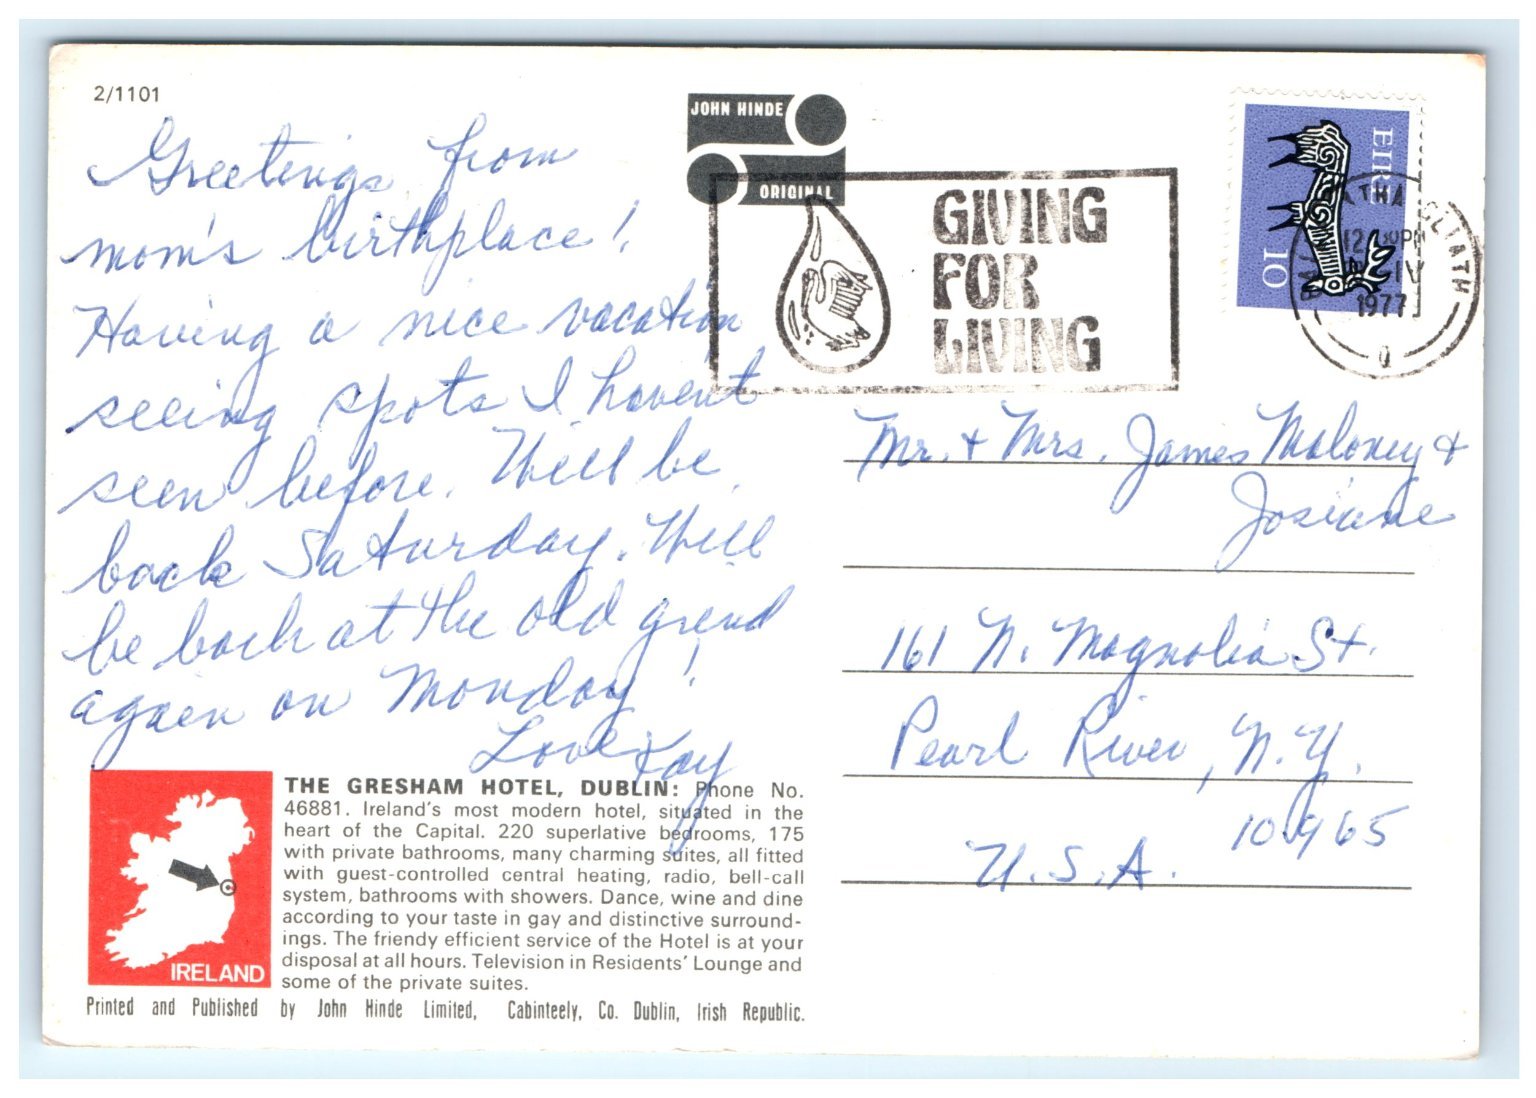 2/1101
Greetings from
mom's birthplace!
Having a nice vacation
seeing spots I haven't
seen before. Will be
back Saturday. Will
be back at the old grind
again on Monday!
Love, Kay
THE GRESHAM HOTEL, DUBLIN: Phone No.
46881. Ireland's most modern hotel, situated in the
heart of the Capital. 220 superlative bedrooms, 175
with private bathrooms, many charming suites, all fitted
with guest-controlled central heating, radio, bell-call
system, bathrooms with showers. Dance, wine and dine
according to your taste in gay and distinctive surround-
ings. The friendy efficient service of the Hotel is at your
disposal at all hours. Television in Residents' Lounge and
some of the private suites.
IRELAND
Printed and Published by John Hinde Limited, Cabinteely, Co. Dublin, Irish Republic.
JOHN HINDE
ORIGINAL
GIVING
FOR
LIVING
EIRE
10
ATHA CLIATH
IV
1977
Mr. + Mrs. James Maloney +
Josiane
161 N. Magnolia St.
Pearl River, N.Y.
10965
U.S.A.